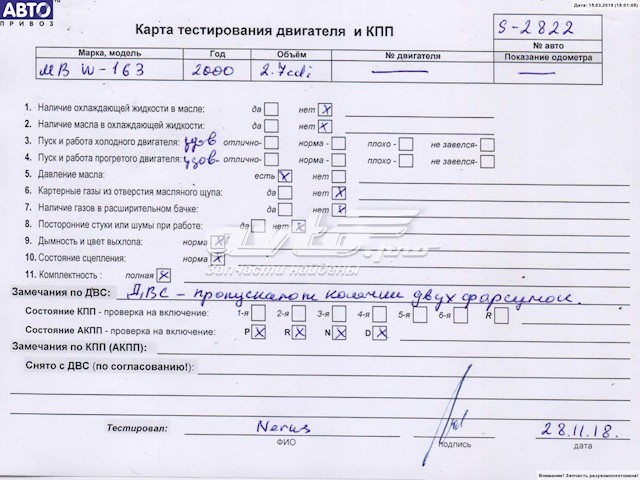 АВТО
ПРИВОЗ
Дата: 15.03.2019 (18:01:08)
Карта тестирования двигателя и КПП
S-2822
№ авто
Марка, модель Год Объём № двигателя Показание одометра
МВ W-163 2000 2.7cdi — —
1. Наличие охлаждающей жидкости в масле: да нет X
2. Наличие масла в охлаждающей жидкости: да нет X
3. Пуск и работа холодного двигателя: удов отлично- норма - плохо - не завелся-
4. Пуск и работа прогретого двигателя: удов. отлично- норма - плохо - не завелся-
5. Давление масла: есть X нет
6. Картерные газы из отверстия масляного щупа: да нет X
7. Наличие газов в расширительном бачке: да нет X
8. Посторонние стуки или шумы при работе: да нет X
9. Дымность и цвет выхлопа: норма X
10. Состояние сцепления: норма X
11. Комплектность : полная X
запчасти найдены
Замечания по ДВС: ДВС - пропускают колечки двух форсунок.
Состояние КПП - проверка на включение: 1-я 2-я 3-я 4-я 5-я 6-я R
Состояние АКПП - проверка на включение: P X R X N X D X
Замечания по КПП (АКПП):
Снято с ДВС (по согласованию!):
Тестировал: 28.11.18.
ФИО подпись дата
Внимание! Запчасть разукомплектована!